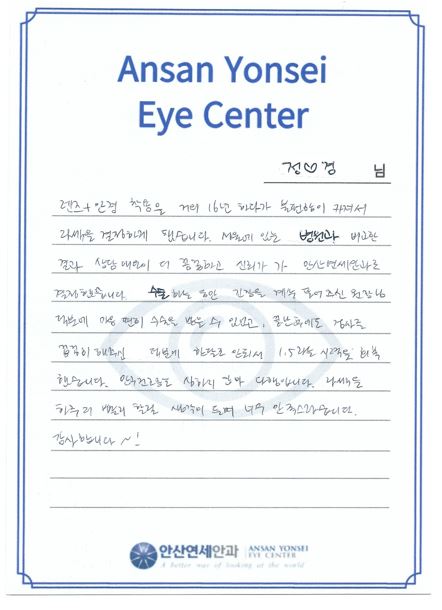 Ansan Yonsei
Eye Center
정♡경 님
렌즈+안경 착용을 거의 16년 하다가 불편함이 커져서
라섹을 결정하게 됐습니다. 서울에 있는 병원과 비교한
결과 상담 내용이 더 꼼꼼하고 신뢰가 가 안산연세안과로
결정했습니다. 수술하는 동안 긴장을 계속 풀어주신 원장님
덕분에 마음 편히 수술을 받을 수 있었고, 끝난 후에도 검사를
꼼꼼히 해주신 덕분에 한달도 안되서 1.5라는 시력도 회복
했습니다. 안구건조증도 심하지 않아 다행입니다. 라섹을
하루라도 빨리 할걸 생각이 들며 너무 만족스럽습니다.
감사합니다~!
안산연세안과 ANSAN YONSEI
EYE CENTER
A better way of looking at the world